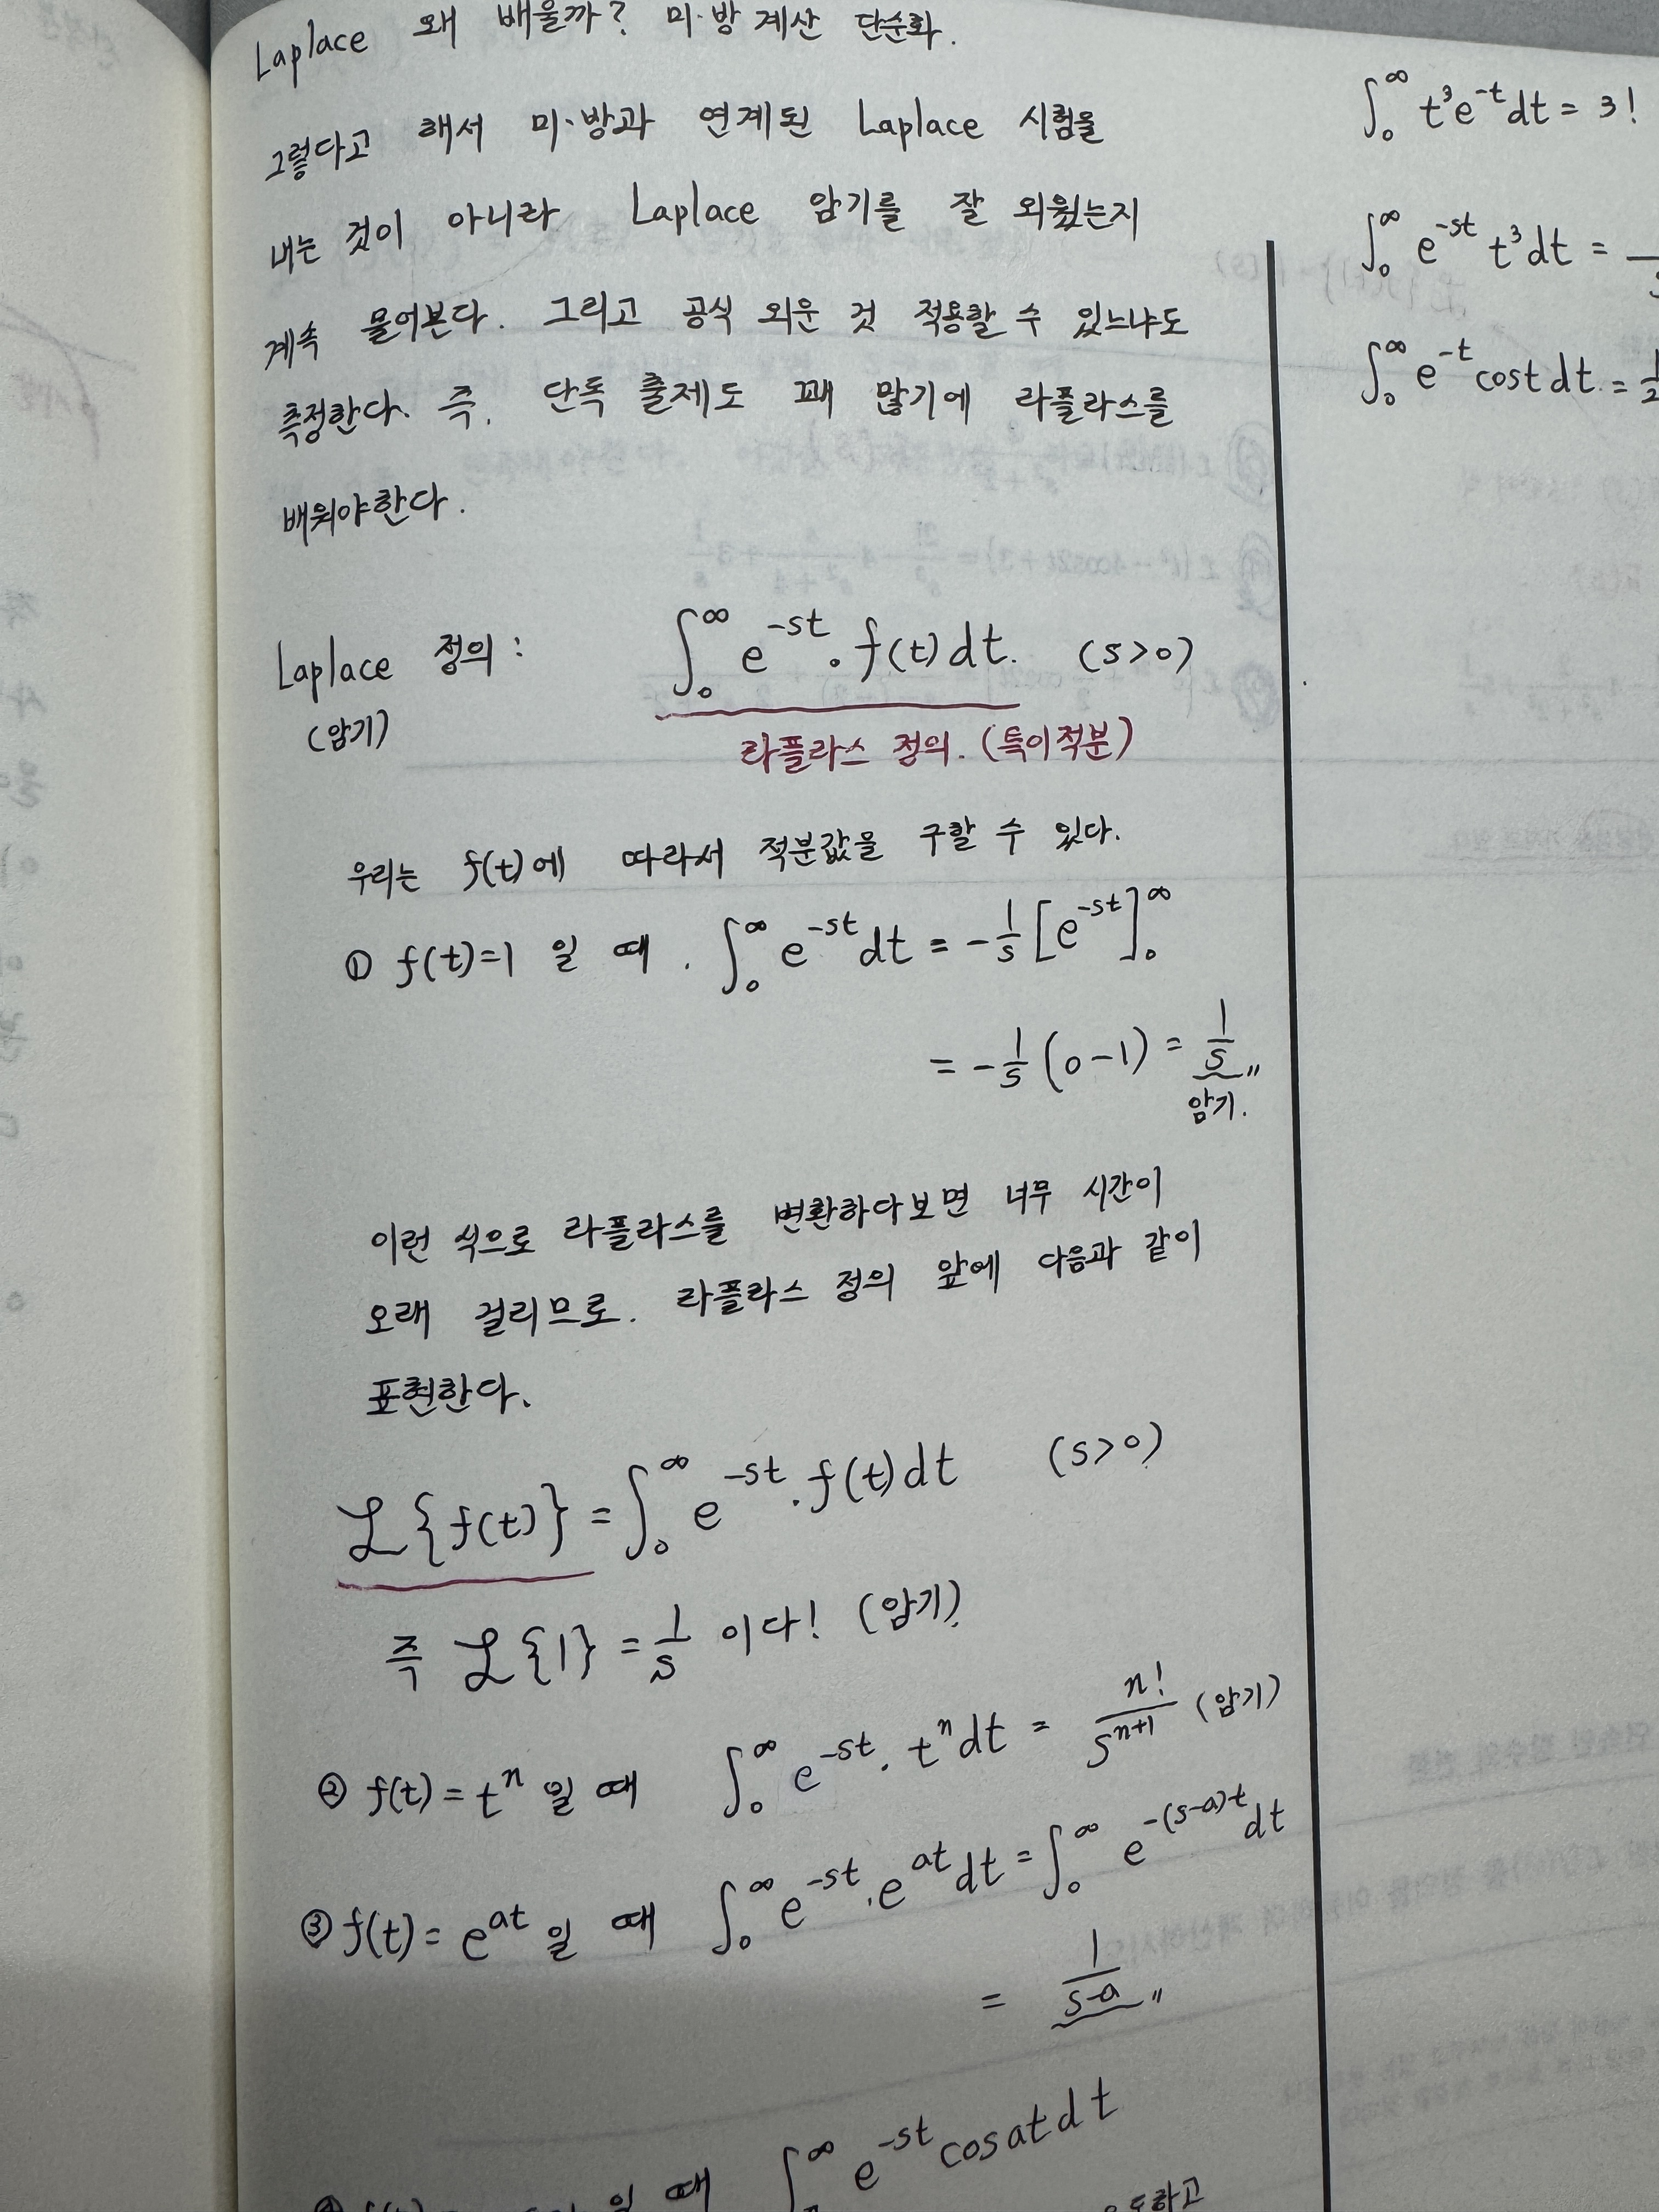 Laplace 왜 배울까? 미·방 계산 단순화.
그렇다고 해서 미·방과 연계된 Laplace 시험을
내는 것이 아니라 Laplace 암기를 잘 외웠는지
계속 물어본다. 그리고 공식 외운 것 적용할 수 있느냐도
측정한다. 즉, 단독 출제도 꽤 많기에 라플라스를
배워야한다.
Laplace 정의 : ∫₀^∞ e^{-st} · f(t) dt. (s>0)
(암기)
라플라스 정의. (특이적분)
우리는 f(t)에 따라서 적분값을 구할 수 있다.
① f(t)=1 일 때. ∫₀^∞ e^{-st} dt = -1/s [e^{-st}]₀^∞
= -1/s (0-1) = 1/s〃
암기.
이런 식으로 라플라스를 변환하다보면 너무 시간이
오래 걸리므로. 라플라스 정의 앞에 다음과 같이
표현한다.
ℒ{f(t)} = ∫₀^∞ e^{-st} · f(t) dt (s>0)
즉 ℒ{1} = 1/s 이다! (암기).
② f(t) = t^n 일 때 ∫₀^∞ e^{-st} · t^n dt = n!/s^{n+1} (암기)
③ f(t) = e^{at} 일 때 ∫₀^∞ e^{-st} · e^{at} dt = ∫₀^∞ e^{-(s-a)t} dt
= 1/(s-a)〃
일 때 ∫ e^{-st} cos at dt
∫₀^∞ t³e^{-t} dt = 3!
∫₀^∞ e^{-st} t³ dt =
∫₀^∞ e^{-t} cos t dt. = 1/2